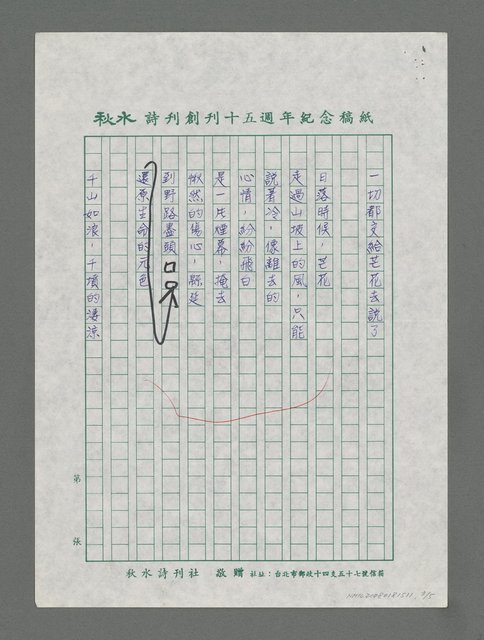 秋水 詩刊創刊十五週年紀念稿紙
一切都交給芒花去說了
日落時候，芒花
走過山坡上的風，只能
說著冷，像離去的
心情，紛紛飛白
是一片煙幕，掩去
愀然的傷心，縣延
到野路盡頭
還原生命的元色
千山如浪，千墳的淒涼
第
張
秋水詩刊社 敬贈 社址：台北市郵政十四支五十七號信箱